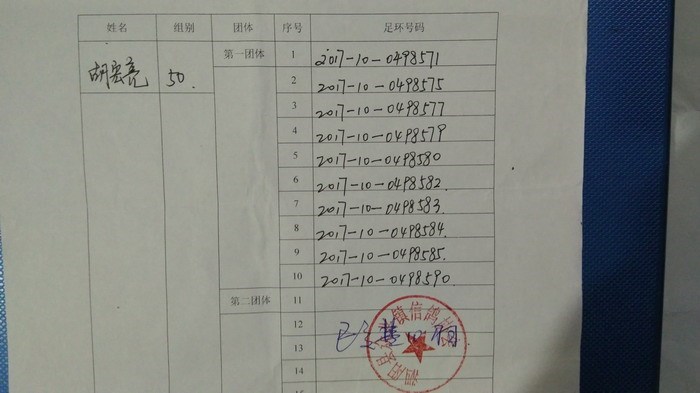 姓名 组别 团体 序号 足环号码
胡宏亮 50. 第一团体 1 2017-10-0498571
2 2017-10-0498575
3 2017-10-0498577
4 2017-10-0498579
5 2017-10-0498580
6 2017-10-0498582.
7 2017-10-0498583.
8 2017-10-0498584.
9 2017-10-0498585.
10 2017-10-0498590.
第二团体 11
12
镇信鸽
13
14